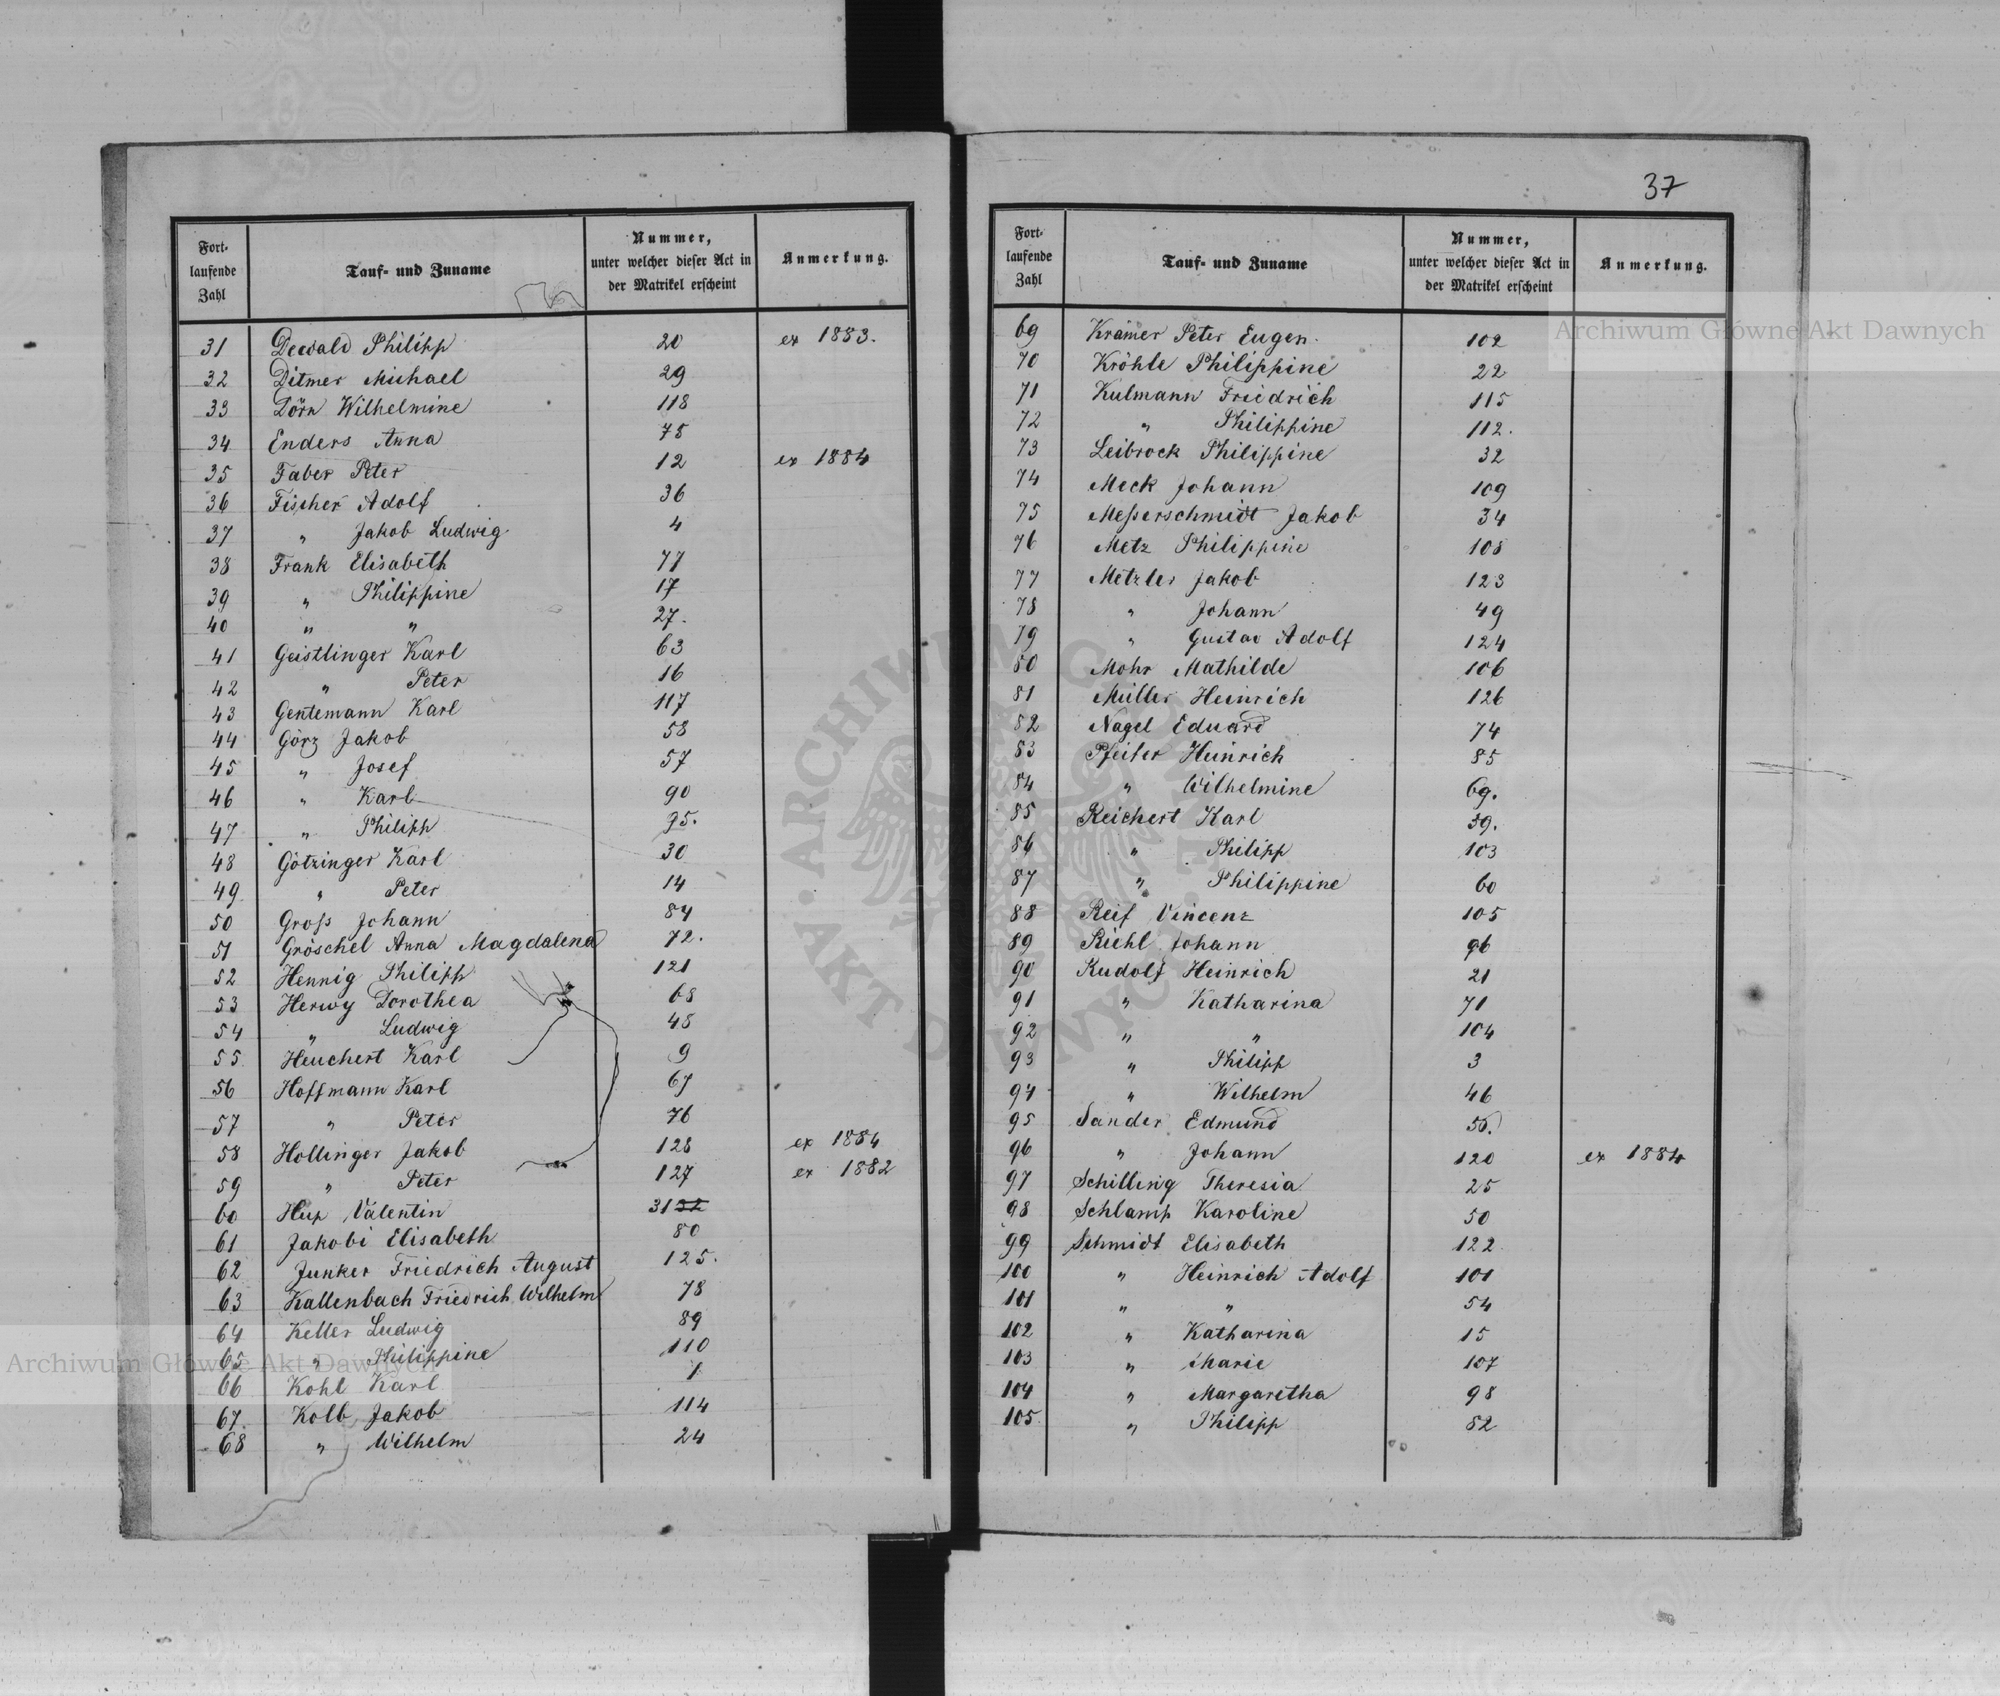 37
Fort-
laufende
Zahl
Tauf- und Zuname
Nummer,
unter welcher dieser Act in
der Matrikel erscheint
Anmerkung.
31 Dewald Philipp 20 ex 1883.
32 Ditmer Michael 29
33 Dörn Wilhelmine 118
34 Enders Anna 75
35 Faber Peter 12 ex 1884
36 Fischer Adolf 36
37 " Jakob Ludwig 4
38 Frank Elisabeth 77
39 " Philippine 17
40 " " 27.
41 Geistlinger Karl 63
42 " Peter 16
43 Gentemann Karl 117
44 Görz Jakob 58
45 " Josef 57
46 " Karl 90
47 " Philipp 95.
48 Götzinger Karl 30
49 " Peter 14
50 Groß Johann 84
51 Gröschel Anna Magdalena 72.
52 Hennig Philipp 121
53 Herwy Dorothea 68
54 " Ludwig 48
55 Heuchert Karl 9
56 Hoffmann Karl 67
57 " Peter 76
58 Hollinger Jakob 128 ex 1884
59 " Peter 127 ex 1882
60 Hux Valentin 31
61 Jakobi Elisabeth 80
62 Junker Friedrich August 125.
63 Kallenbach Friedrich Wilhelm 78
64 Keller Ludwig 89
65 " Philippine 110
66 Kohl Karl 1
67. Kolb Jakob 114
68 " Wilhelm 24
Fort-
laufende
Zahl
Tauf- und Zuname
Nummer,
unter welcher dieser Act in
der Matrikel erscheint
Anmerkung.
69 Krämer Peter Eugen 102
70 Kröhle Philippine 22
71 Kulmann Friedrich 115
72 " Philippine 112.
73 Leibrock Philippine 32
74 Meck Johann 109
75 Meßerschmidt Jakob 34
76 Metz Philippine 108
77 Metzler Jakob 123
78 " Johann 49
79 " Gustav Adolf 124
80 Mohr Mathilde 106
81 Müller Heinrich 126
82 Nagel Eduard 74
83 Pfeifer Heinrich 85
84 " Wilhelmine 69.
85 Reichert Karl 59.
86 " Philipp 103
87 " Philippine 60
88 Reif Vincenz 105
89 Riehl Johann 96
90 Rudolf Heinrich 21
91 " Katharina 71
92 " " 104
93 " Philipp 3
94 " Wilhelm 46
95 Sander Edmund
96 " Johann 120 ex 1884
97 Schilling Theresia 25
98 Schlamp Karoline 50
99 Schmidt Elisabeth 122
100 " Heinrich Adolf 101
101 " " 54
102 " Katharina 15
103 " Marie 107
104 " Margaretha 98
105 " Philipp 82
Archiwum Główne Akt Dawnych
Archiwum Główne Akt Dawnych